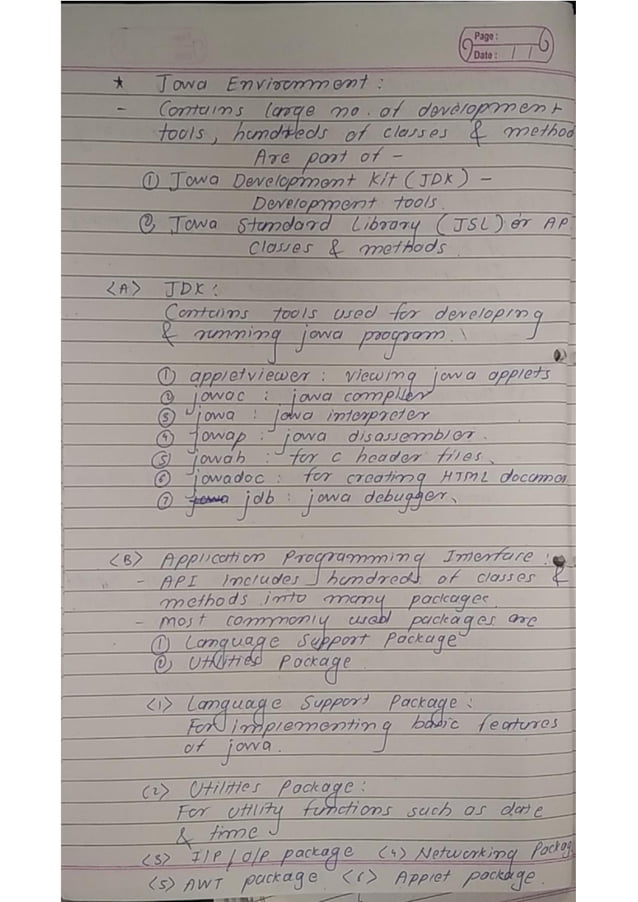 Page :
Date : / /
* Java Environment :
- Contains large no. of development
tools, hundreds of classes & method
Are part of -
① Java Development Kit (JDK) -
Development tools.
② Java Standard Library (JSL) or AP
Classes & methods.
<A> JDK :
Contains tools used for developing
& running java program.
① appletviewer : viewing java applets
② javac : java compiler
③ java : java interpreter
④ javap : java disassembler.
⑤ javah : for c header files.
⑥ javadoc : for creating HTML documen
⑦ jdb : java debugger.
<B> Application Programming Interface :
- API includes hundreds of classes &
methods into many packages.
- most commonly used packages are
① Language Support Package
② Utilities Package.
<1> Language Support Package :
For implementing basic features
of java.
<2> Utilities Package :
For utility functions such as date
& time
<3> I/P / O/P package <4> Networking Packag
<5> AWT package <6> Applet package.